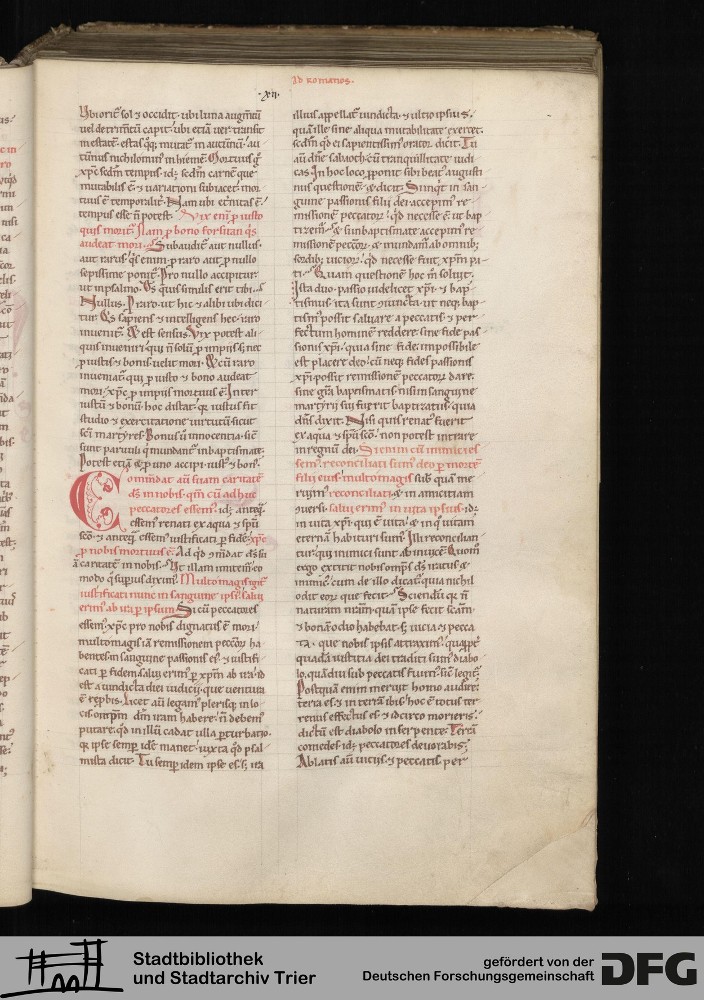 Ad romanos.
·xii·
Vbi oritꝛ sol ⁊ occidit· ubi luna augm̄tū
uel detrim̄tū capit· ubi etiā uer transit
in estatē· estas qq; mutatꝛ in autūnū· au
tūnus nichilomin᷒ in hiemē· Mortuus ḡ
xp̄c scd̄m tempus· id; scd̄m carnē que
mutabilis ē· ⁊ uariationi subiacet· mor
tuus ē temporalitꝛ· Nam ubi et̄nitas ē·
tempus esse n̄ potest· Vix eni p iusto
quis moritꝛ· Nam p bono forsitan q̄s
audeat mori· Subauditꝛ aut nullus·
aut rarus· q̄s enim p raro aut p nullo
sepissime ponitꝛ· Pro nullo accipitur·
ut in psalmo· Ds̄ quis similis erit tibi·
Nullus· P raro· ut hic ⁊ alibi ubi dici
tur· Qs̄ sapiens ⁊ intelligens hec· raro
inuenitꝛ· Et est sensus· Vix potest ali
quis inueniri· qui n̄ solū p impiis; s; nec
p iustis ⁊ bonis uelit mori· Et cū raro
inueniatꝛ qui p iusto ⁊ bono audeat
mori· xp̄c p impiis mortuus ē· Inter
iustū ⁊ bonū hoc distat· qꝛ iustus fit
studio ⁊ exercitatione uirtutū sicut
sc̄i martyres· Bonus ū innocentia· sic̄
sunt paruuli q̄ mundantꝛ in baptismate·
Potest etiā ⁊ p uno accipi· iust᷒ ⁊ bon᷒·
Commdat aū suam caritatē
ds̄ in nobis· qm̄ cū adhuc
peccatores essem᷒· id; anteq̄
essem᷒ renati ex aqua ⁊ spū
sc̄o· ⁊ anteq̄ essem᷒ iustificati p fidē· xp̄c
p nobis mortuus ē· Ad qd̄ ꝯm̄dat ds̄ su
ā caritatē in nobis· Vt illam imitem᷒ eo
modo q̄ sup̄ius dixim᷒· Multo magis igitꝛ
iustificati nunc in sanguine ipsi᷒· salui
erim᷒ ab ira p ipsum· Si cū peccatores
essem᷒· xp̄c pro nobis dignatus ē mori·
multo magis iā remissionem peccor̄ ha
bentes in sanguine passionis ei᷒· ⁊ iustifi
cati p fidem· salui erim᷒ p xpm̄ ab ira· id
est a uindicta diei iudicii· que uentura
ē rep̄bis· Licet aū legam᷒ plerisq; in lo
cis om̄ip̄m dn̄m iram habere· n̄ debem᷒
putare· qd̄ in illū cadat ulla pturbatio·
qꝛ ipse semp idē manet· iuxta qd̄ psal
mista dicit· Tu semp idem ipse es· s; ira
illius appellatꝛ uindicta· ⁊ ultio ipsius·
quā ille sine aliqua mutabilitate exercet·
scd̄m qd̄ ei sapientissim᷒ orator dicit· Tu
aū dn̄e sabaoth· cū tranquillitate iudi
cas· In hoc loco pponit sibi beat᷒ augusti
nus questionē ⁊ dicit· Si inqt in san
guine passionis filii dei acceperim᷒ re
missionē peccator̄· qd̄ necesse ē ut bap
tizem᷒· ⁊ si in baptismate accepim᷒ re
missionē peccor̄· ⁊ mundam᷒ ab omib;
sordib; uicior̄· qd̄ necesse fuit xpm̄ pa
ti· Quam questionē hoc m̄ soluit·
Ista duo· passio uidelicet xp̄i· ⁊ bap
tismus· ita sunt ꝯiuncta· ut neq; bap
tism᷒ possit saluare a peccatis ⁊ per
fectum hominē reddere sine fide pas
sionis xp̄i· quia sine fide impossibile
est placere deo· cū neq; fides passionis
xp̄i possit remissionē peccator̄ dare·
sine grā baptismatis· nisi in sanguine
martyrii sui fuerit baptizatus· quia
dn̄s dixit· Nisi quis renat᷒ fuerit
ex aqua ⁊ spū sc̄o· non potest intrare
in regnū dei· Si enim cū inimici es
sem᷒· reconciliati sum᷒ deo p mortē
filii eius· multo magis sub quam me
ruim᷒ reconciliati· ⁊ in amicitiam
ꝯuersi· salui erim᷒ in uita ipsius· id;
in uita xp̄i· qui ē uita· ⁊ in q̄ uitam
eternā habituri sum᷒· Illi reconcilian
tur· qui inimici sunt ab inuicē· Quom̄
ergo extitit nobis om̄ps ds̄ iratus ⁊
inimic᷒· cum de illo dicatꝛ· quia nichil
odit eor̄ que fecit· Sciendū qꝛ n̄
naturam nr̄am· quā ipse fecit sc̄am·
⁊ bonā odio habebat· s; uicia ⁊ pecca
ta· que nobis ipsi attraxim᷒· quippe
quadā iustitia dei traditi sum᷒ diabo
lo· quā diu sub peccatis fuim᷒· sic̄ legitꝛ·
Postquā enim meruit homo audire·
terra es· ⁊ in terrā ibis· hoc ē tot᷒ ter
renus effectus es· ⁊ idcirco morieris·
dictū est diabolo in serpente· Terrā
comedes· id; peccatores deuorabis·
Ablatis aū uiciis· ⁊ peccatis per
Stadtbibliothek
und Stadtarchiv Trier
gefördert von der
Deutschen Forschungsgemeinschaft
DFG